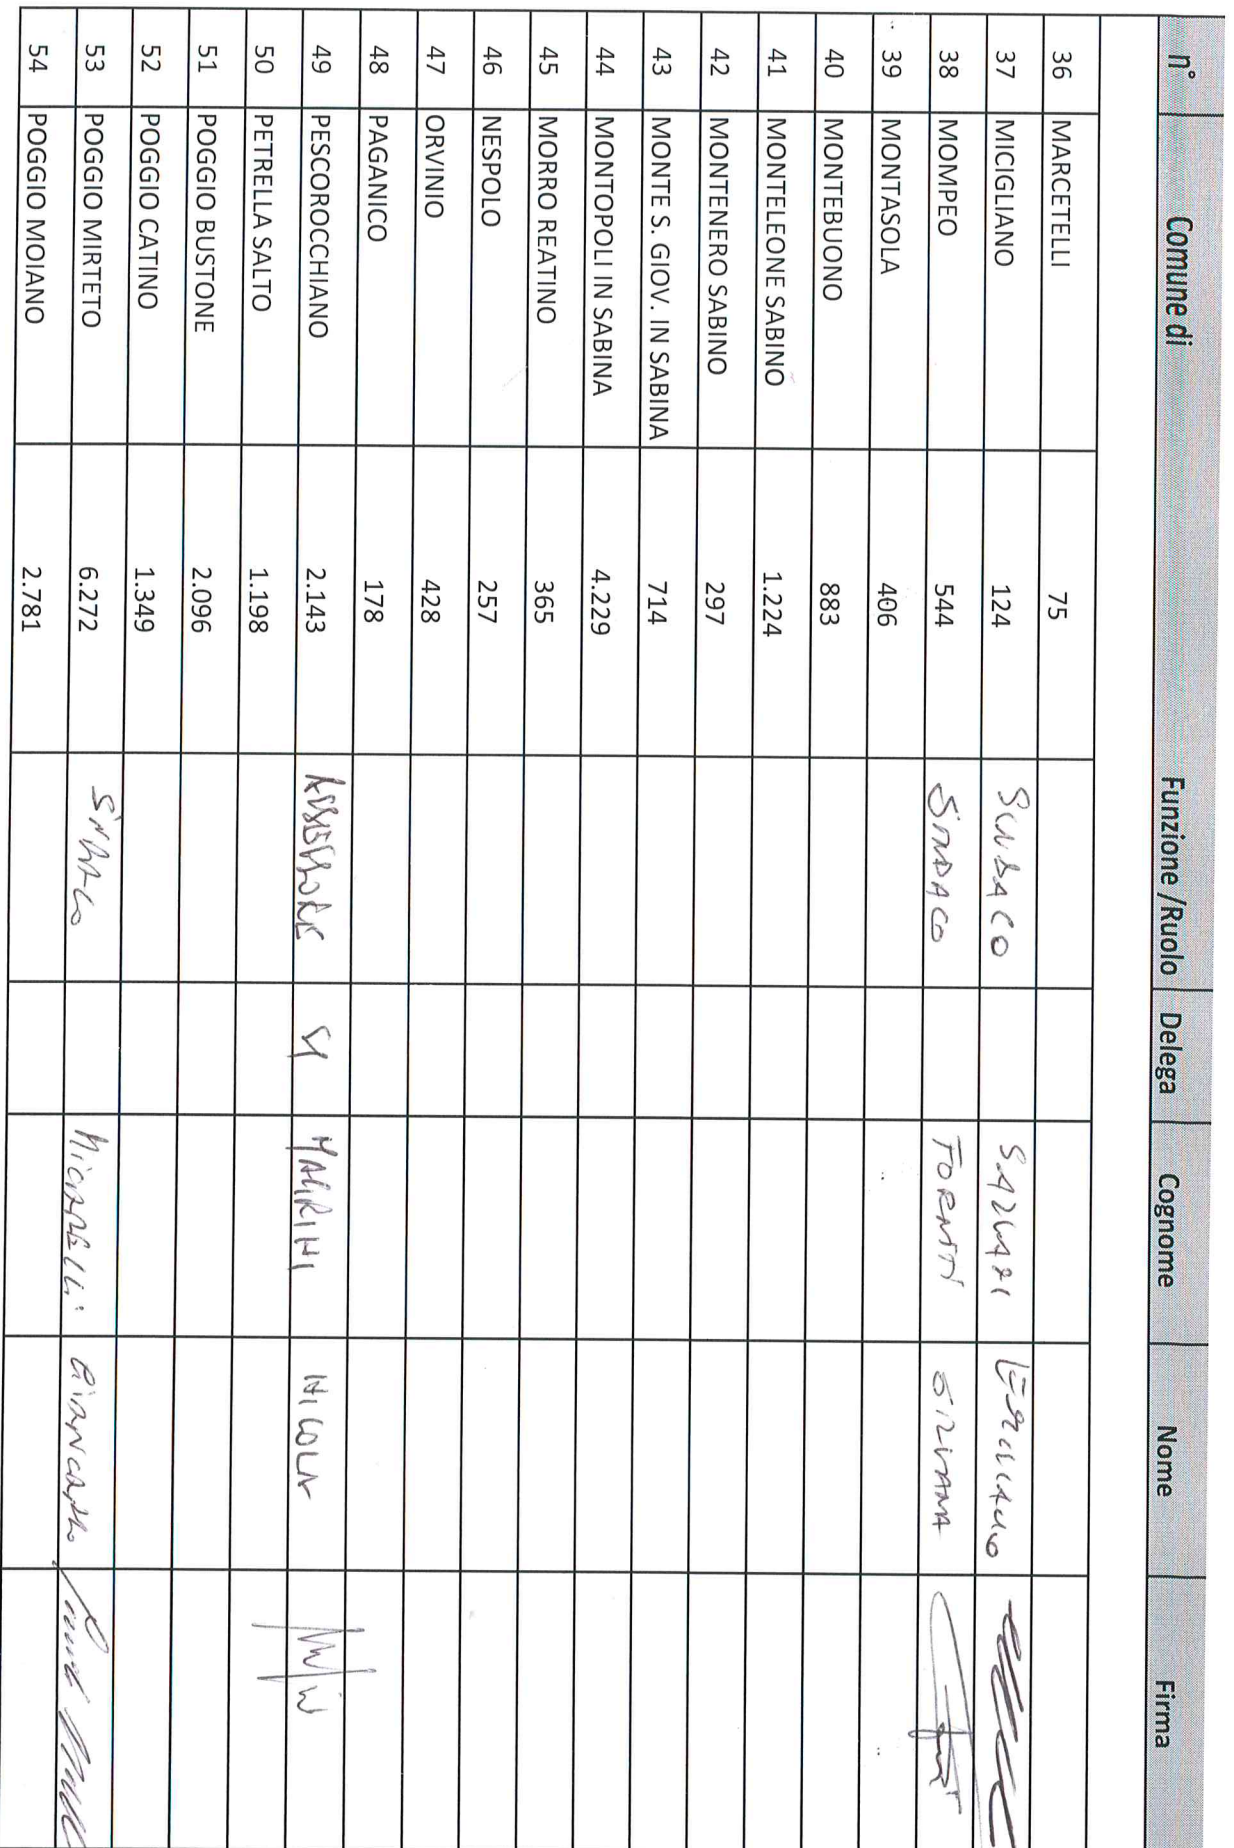 n° Comune di Funzione /Ruolo Delega Cognome Nome Firma
36 MARCETELLI 75
37 MICIGLIANO 124 SINDACO SALVATI EMILIANO
38 MOMPEO 544 SINDACO FORNITI SILVANA
39 MONTASOLA 406
40 MONTEBUONO 883
41 MONTELEONE SABINO 1.224
42 MONTENERO SABINO 297
43 MONTE S. GIOV. IN SABINA 714
44 MONTOPOLI IN SABINA 4.229
45 MORRO REATINO 365
46 NESPOLO 257
47 ORVINIO 428
48 PAGANICO 178
49 PESCOROCCHIANO 2.143 ASSESSORE SI NICOLA
50 PETRELLA SALTO 1.198
51 POGGIO BUSTONE 2.096
52 POGGIO CATINO 1.349
53 POGGIO MIRTETO 6.272 SINDACO MICARELLI GIANCARLO
54 POGGIO MOIANO 2.781